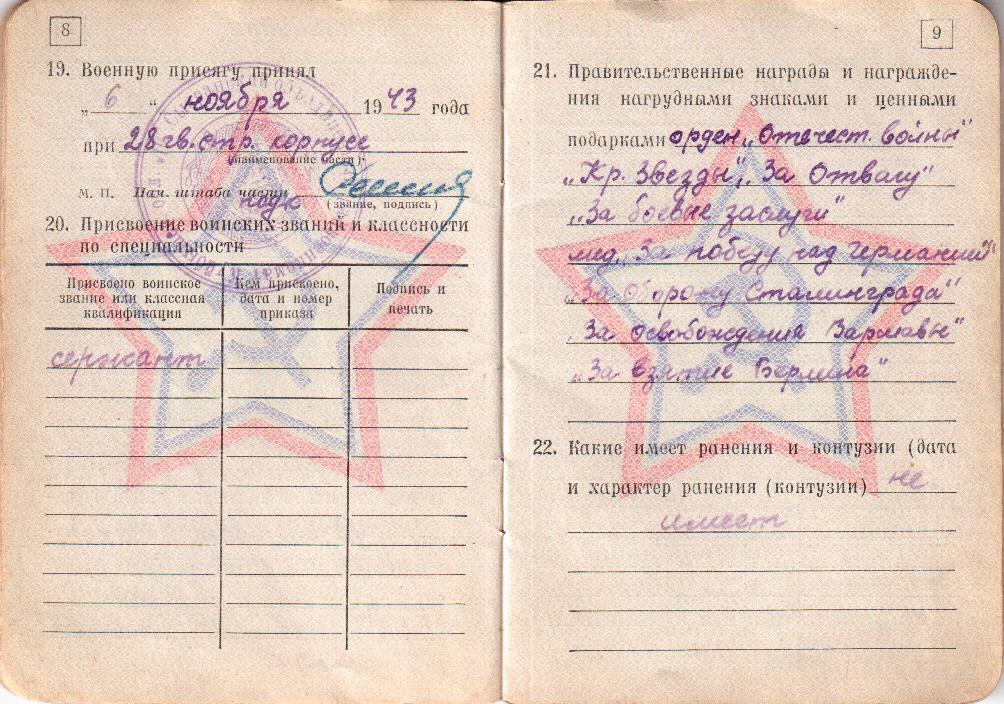 8
19. Военную присягу принял
„ 6 “ ноября 1943 года
при 28 гв. стр. корпусе
(наименование части)
М. П. Нач. штаба части
подк (звание, подпись)
20. Присвоение воинских званий и классности
по специальности
Присвоено воинское звание или классная квалификация
Кем присвоено, дата и номер приказа
Подпись и печать
сержант
9
21. Правительственные награды и награжде-
ния нагрудными знаками и ценными
подарками орден „Отечест. войны"
„Кр. Звезды", „За Отвагу"
„За боевые заслуги"
мед. „За победу над Германией"
„За Оборону Сталинграда"
„За освобождения Варшавы"
„За взятие Берлина"
22. Какие имеет ранения и контузии (дата
и характер ранения (контузии) не
имеет